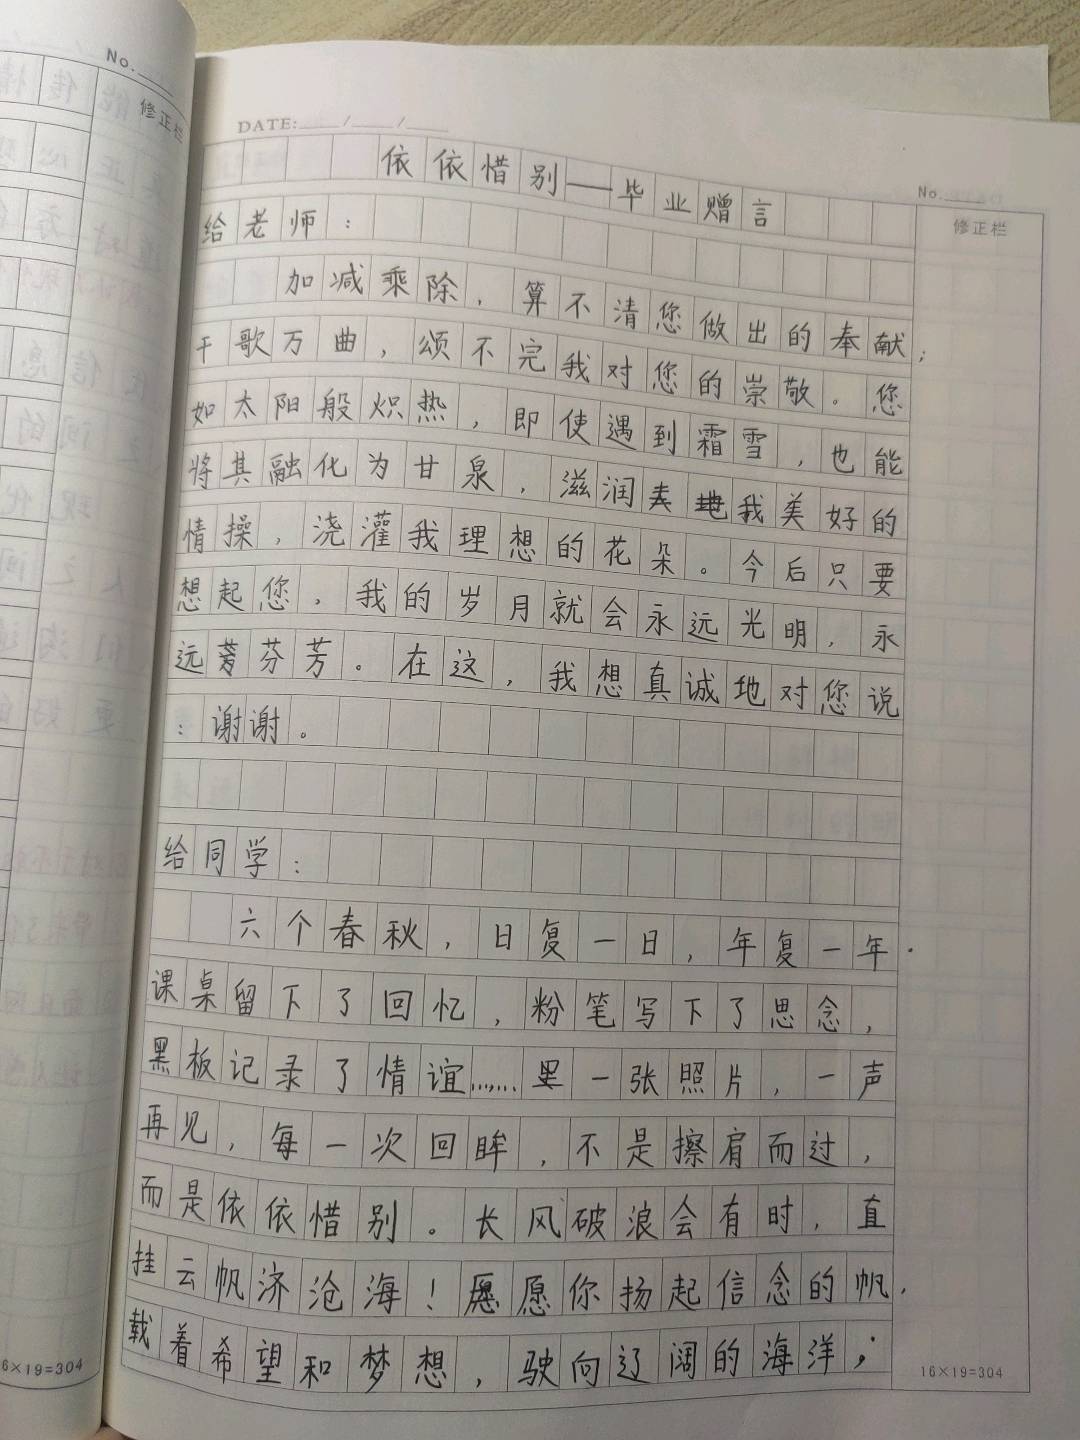 No.
修正栏
DATE: / /
No.
修正栏
依依惜别——毕业赠言
给老师：
加减乘除，算不清您做出的奉献；
千歌万曲，颂不完我对您的崇敬。您
如太阳般炽热，即使遇到霜雪，也能
将其融化为甘泉，滋润我美好的
情操，浇灌我理想的花朵。今后只要
想起您，我的岁月就会永远光明，永
远芬芳。在这，我想真诚地对您说
：谢谢。
给同学：
六个春秋，日复一日，年复一年.
课桌留下了回忆，粉笔写下了思念，
黑板记录了情谊……一张照片，一声
再见，每一次回眸，不是擦肩而过，
而是依依惜别。长风破浪会有时，直
挂云帆济沧海！愿你扬起信念的帆，
载着希望和梦想，驶向辽阔的海洋；
16×19=304
6×19=304